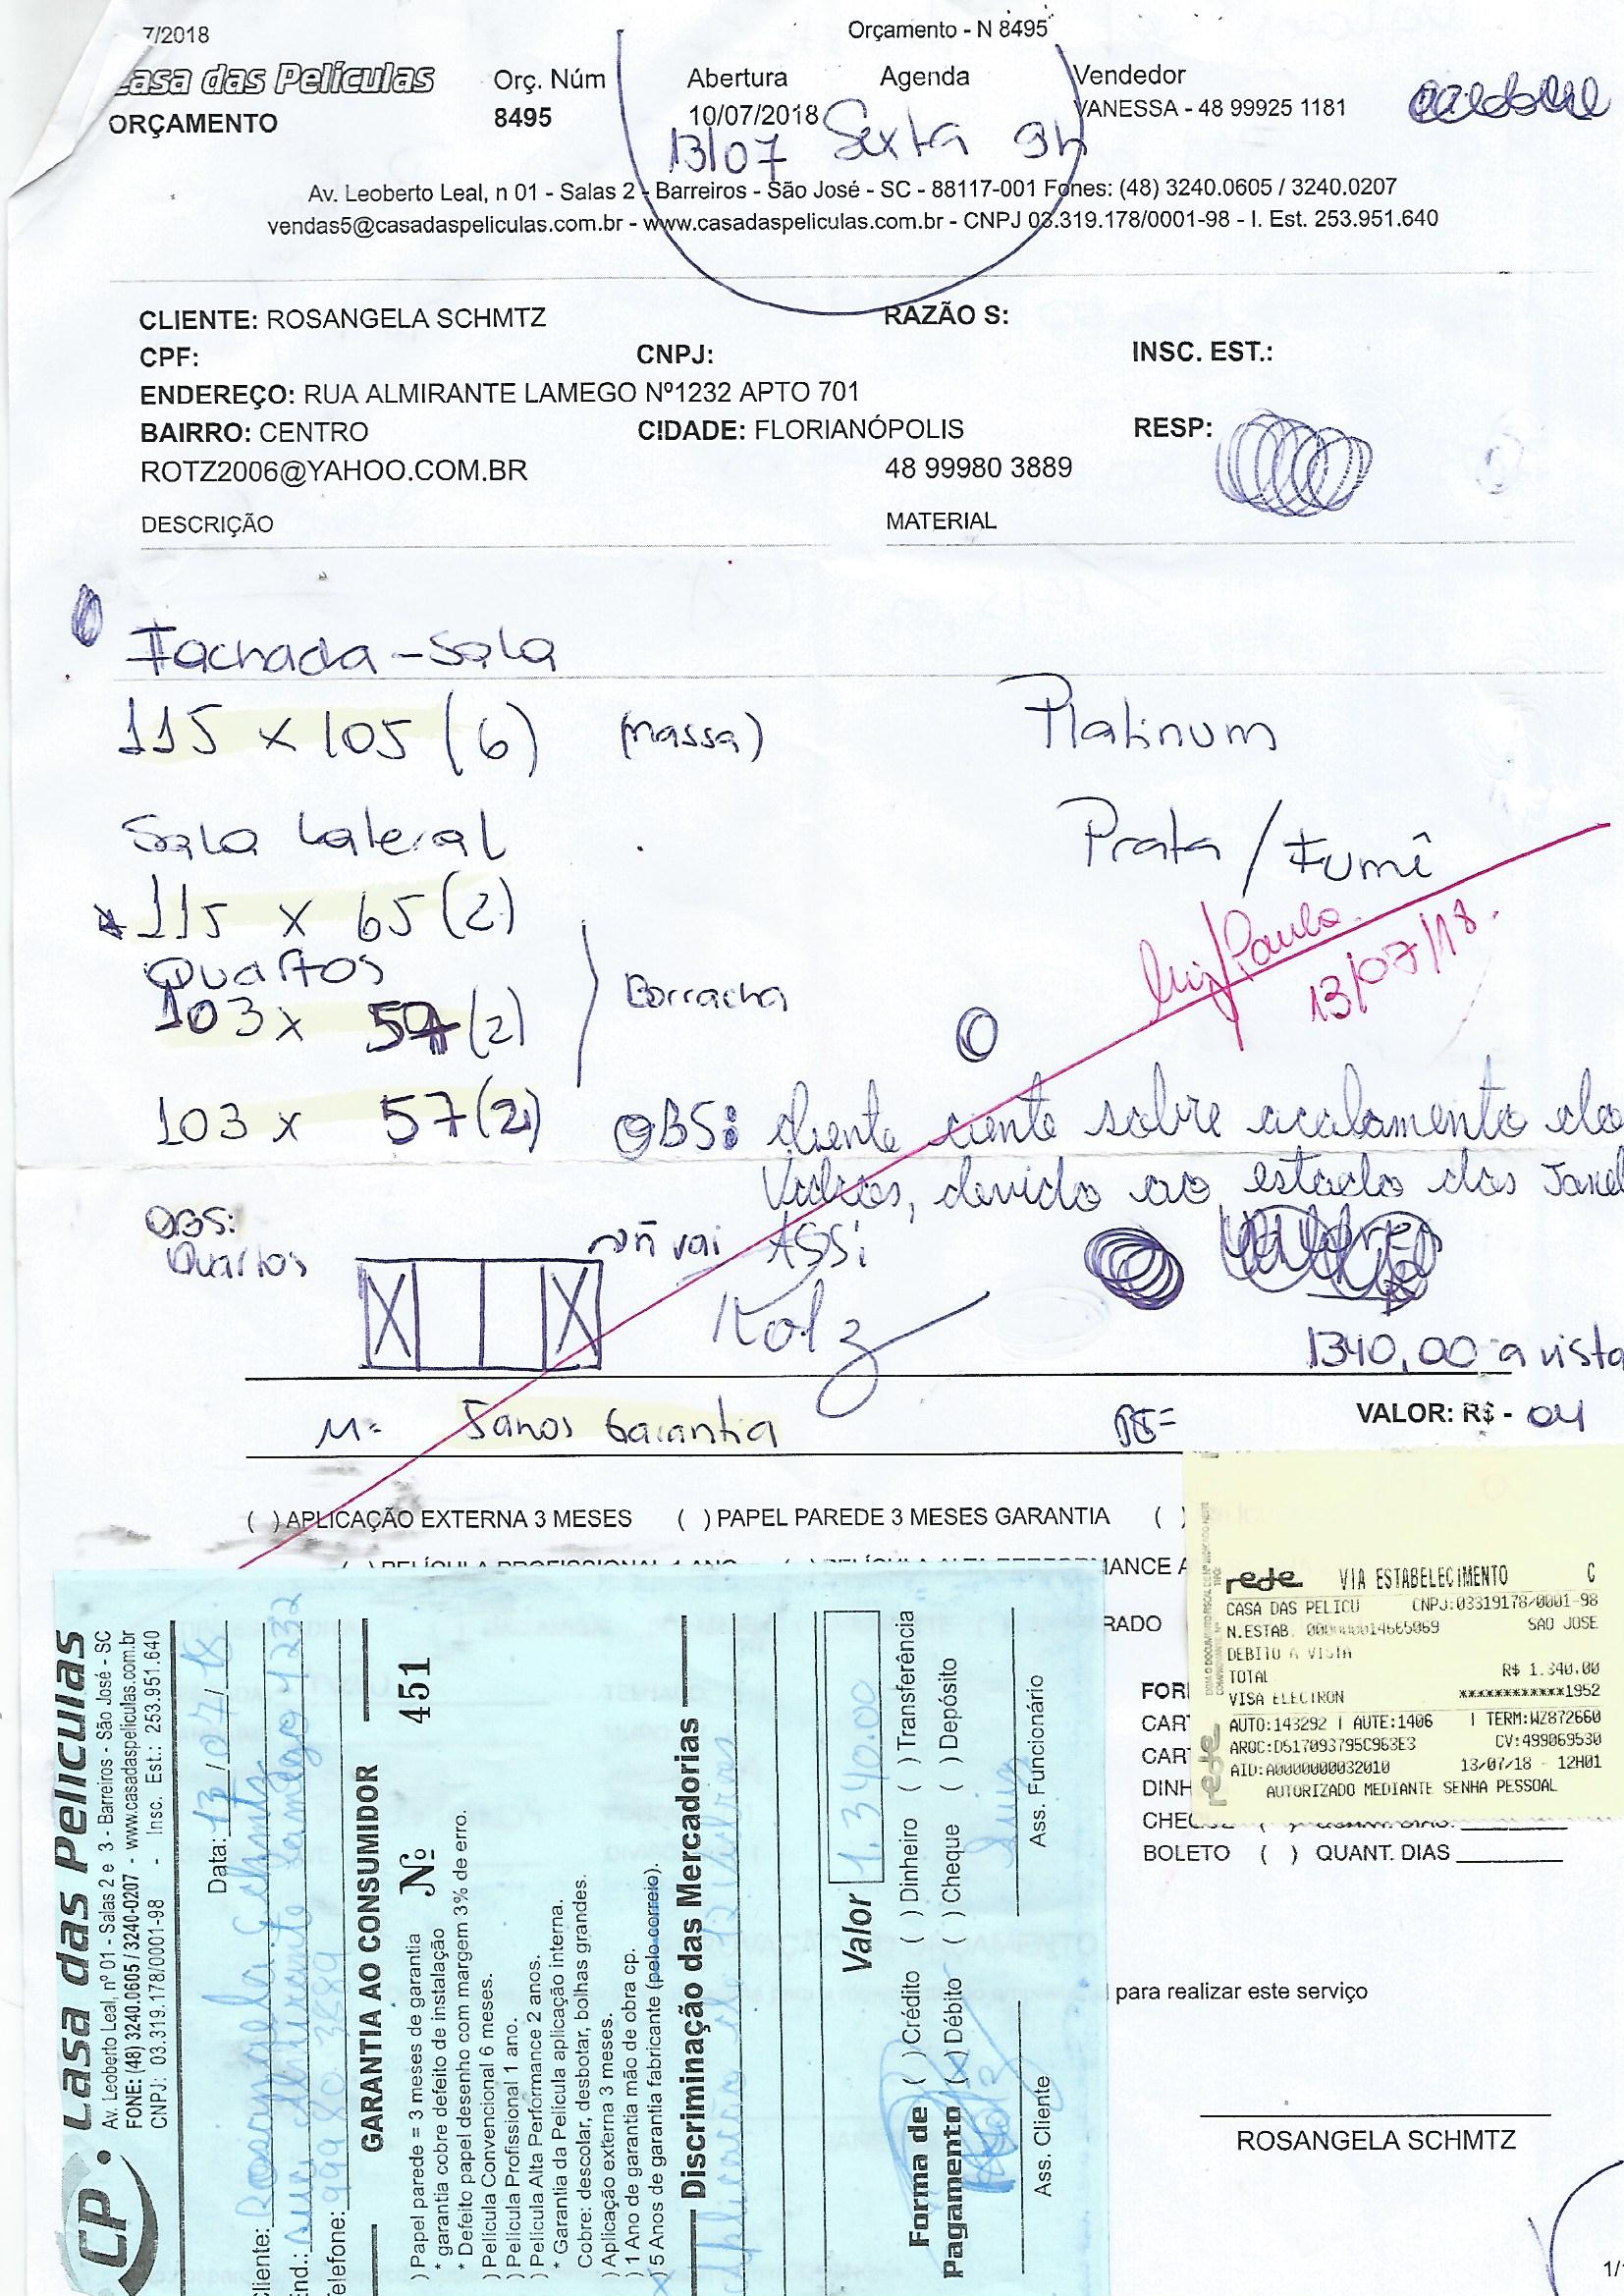 7/2018
Orçamento - N 8495
Casa das Películas
Orç. Núm
Abertura
Agenda
Vendedor
ORÇAMENTO
8495
10/07/2018
VANESSA - 48 99925 1181
13/07 Sexta 9h
Av. Leoberto Leal, n 01 - Salas 2 - Barreiros - São José - SC - 88117-001 Fones: (48) 3240.0605 / 3240.0207
vendas5@casadaspeliculas.com.br - www.casadaspeliculas.com.br - CNPJ 03.319.178/0001-98 - I. Est. 253.951.640
CLIENTE: ROSANGELA SCHMTZ
RAZÃO S:
CPF:
CNPJ:
INSC. EST.:
ENDEREÇO: RUA ALMIRANTE LAMEGO Nº1232 APTO 701
BAIRRO: CENTRO
CIDADE: FLORIANÓPOLIS
RESP:
ROTZ2006@YAHOO.COM.BR
48 99980 3889
DESCRIÇÃO
MATERIAL
Fachada - Sala
115 x 105 (6) (massa)
Platinum
Sala Lateral
Prata / Fumê
115 x 65 (2)
Luiz/Paulo
13/07/18.
Quartos
103 x 57 (2)
Borracha
103 x 57 (2)
OBS: cliente ciente sobre acabamento do
Vidros, devido ao estado das Janel
OBS:
Quartos
não vai
ASS:
1340,00 a vista
M= 5 anos Garantia
VALOR: R$ - 04
( ) APLICAÇÃO EXTERNA 3 MESES ( ) PAPEL PAREDE 3 MESES GARANTIA ( )
( ) PELÍCULA PROFISSIONAL 1 ANO
MANCE A
RADO
FOR
CAR
CAR
DINH
CHE
BOLETO ( ) QUANT. DIAS
para realizar este serviço
ROSANGELA SCHMTZ
1/
rede VIA ESTABELECIMENTO C
CASA DAS PELICU CNPJ:03319178/0001-98
N.ESTAB. 000000014665069 SAO JOSE
DEBITO A VISTA
TOTAL R$ 1.340,00
VISA ELECTRON ************1952
AUTO:143292 | AUTE:1406 | TERM:WZ872660
ARQC:D517093795C963E3 CV:499069530
AID:A0000000032010 13/07/18 - 12H01
AUTORIZADO MEDIANTE SENHA PESSOAL
rede
CP. Casa das Películas
Av. Leoberto Leal, nº 01 - Salas 2 e 3 - Barreiros - São José - SC
FONE: (48) 3240.0605 / 3240-0207 - www.casadaspeliculas.com.br
CNPJ: 03.319.178/0001-98 - Insc. Est.: 253.951.640
Data: 13/07/18
Cliente: Rosangela Schmtz
End.: Rua Almirante Lamego 1232
Telefone: 999 80 3889
GARANTIA AO CONSUMIDOR
) Papel parede = 3 meses de garantia Nº 451
* garantia cobre defeito de instalação
* Defeito papel desenho com margem 3% de erro.
) Película Convencional 6 meses.
) Película Profissional 1 ano.
) Película Alta Performance 2 anos.
* Garantia da Película aplicação interna.
Cobre: descolar, desbotar, bolhas grandes.
) Aplicação externa 3 meses.
) 1 Ano de garantia mão de obra cp.
) 5 Anos de garantia fabricante (pelo correio).
Discriminação das Mercadorias
Aplicação de 12 vidros
Valor 1.340.00
Forma de Pagamento
( ) Crédito ( ) Dinheiro ( ) Transferência
(x) Débito ( ) Cheque ( ) Depósito
Ass. Cliente
Ass. Funcionário